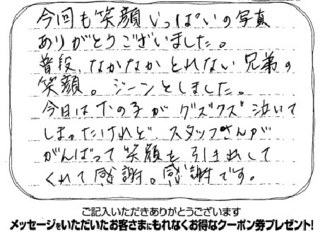 今回も笑顔いっぱいの写真
ありがとうございました。
普段、なかなかとれない兄弟の
笑顔。ジーンとしました。
今日は下の子がグズグズ泣いて
しまったけれど、スタッフさんが
がんばって笑顔を引き出して
くれて感謝。感謝です。
ご記入いただきありがとうございます
メッセージをいただいたお客さまにもれなくお得なクーポン券プレゼント!